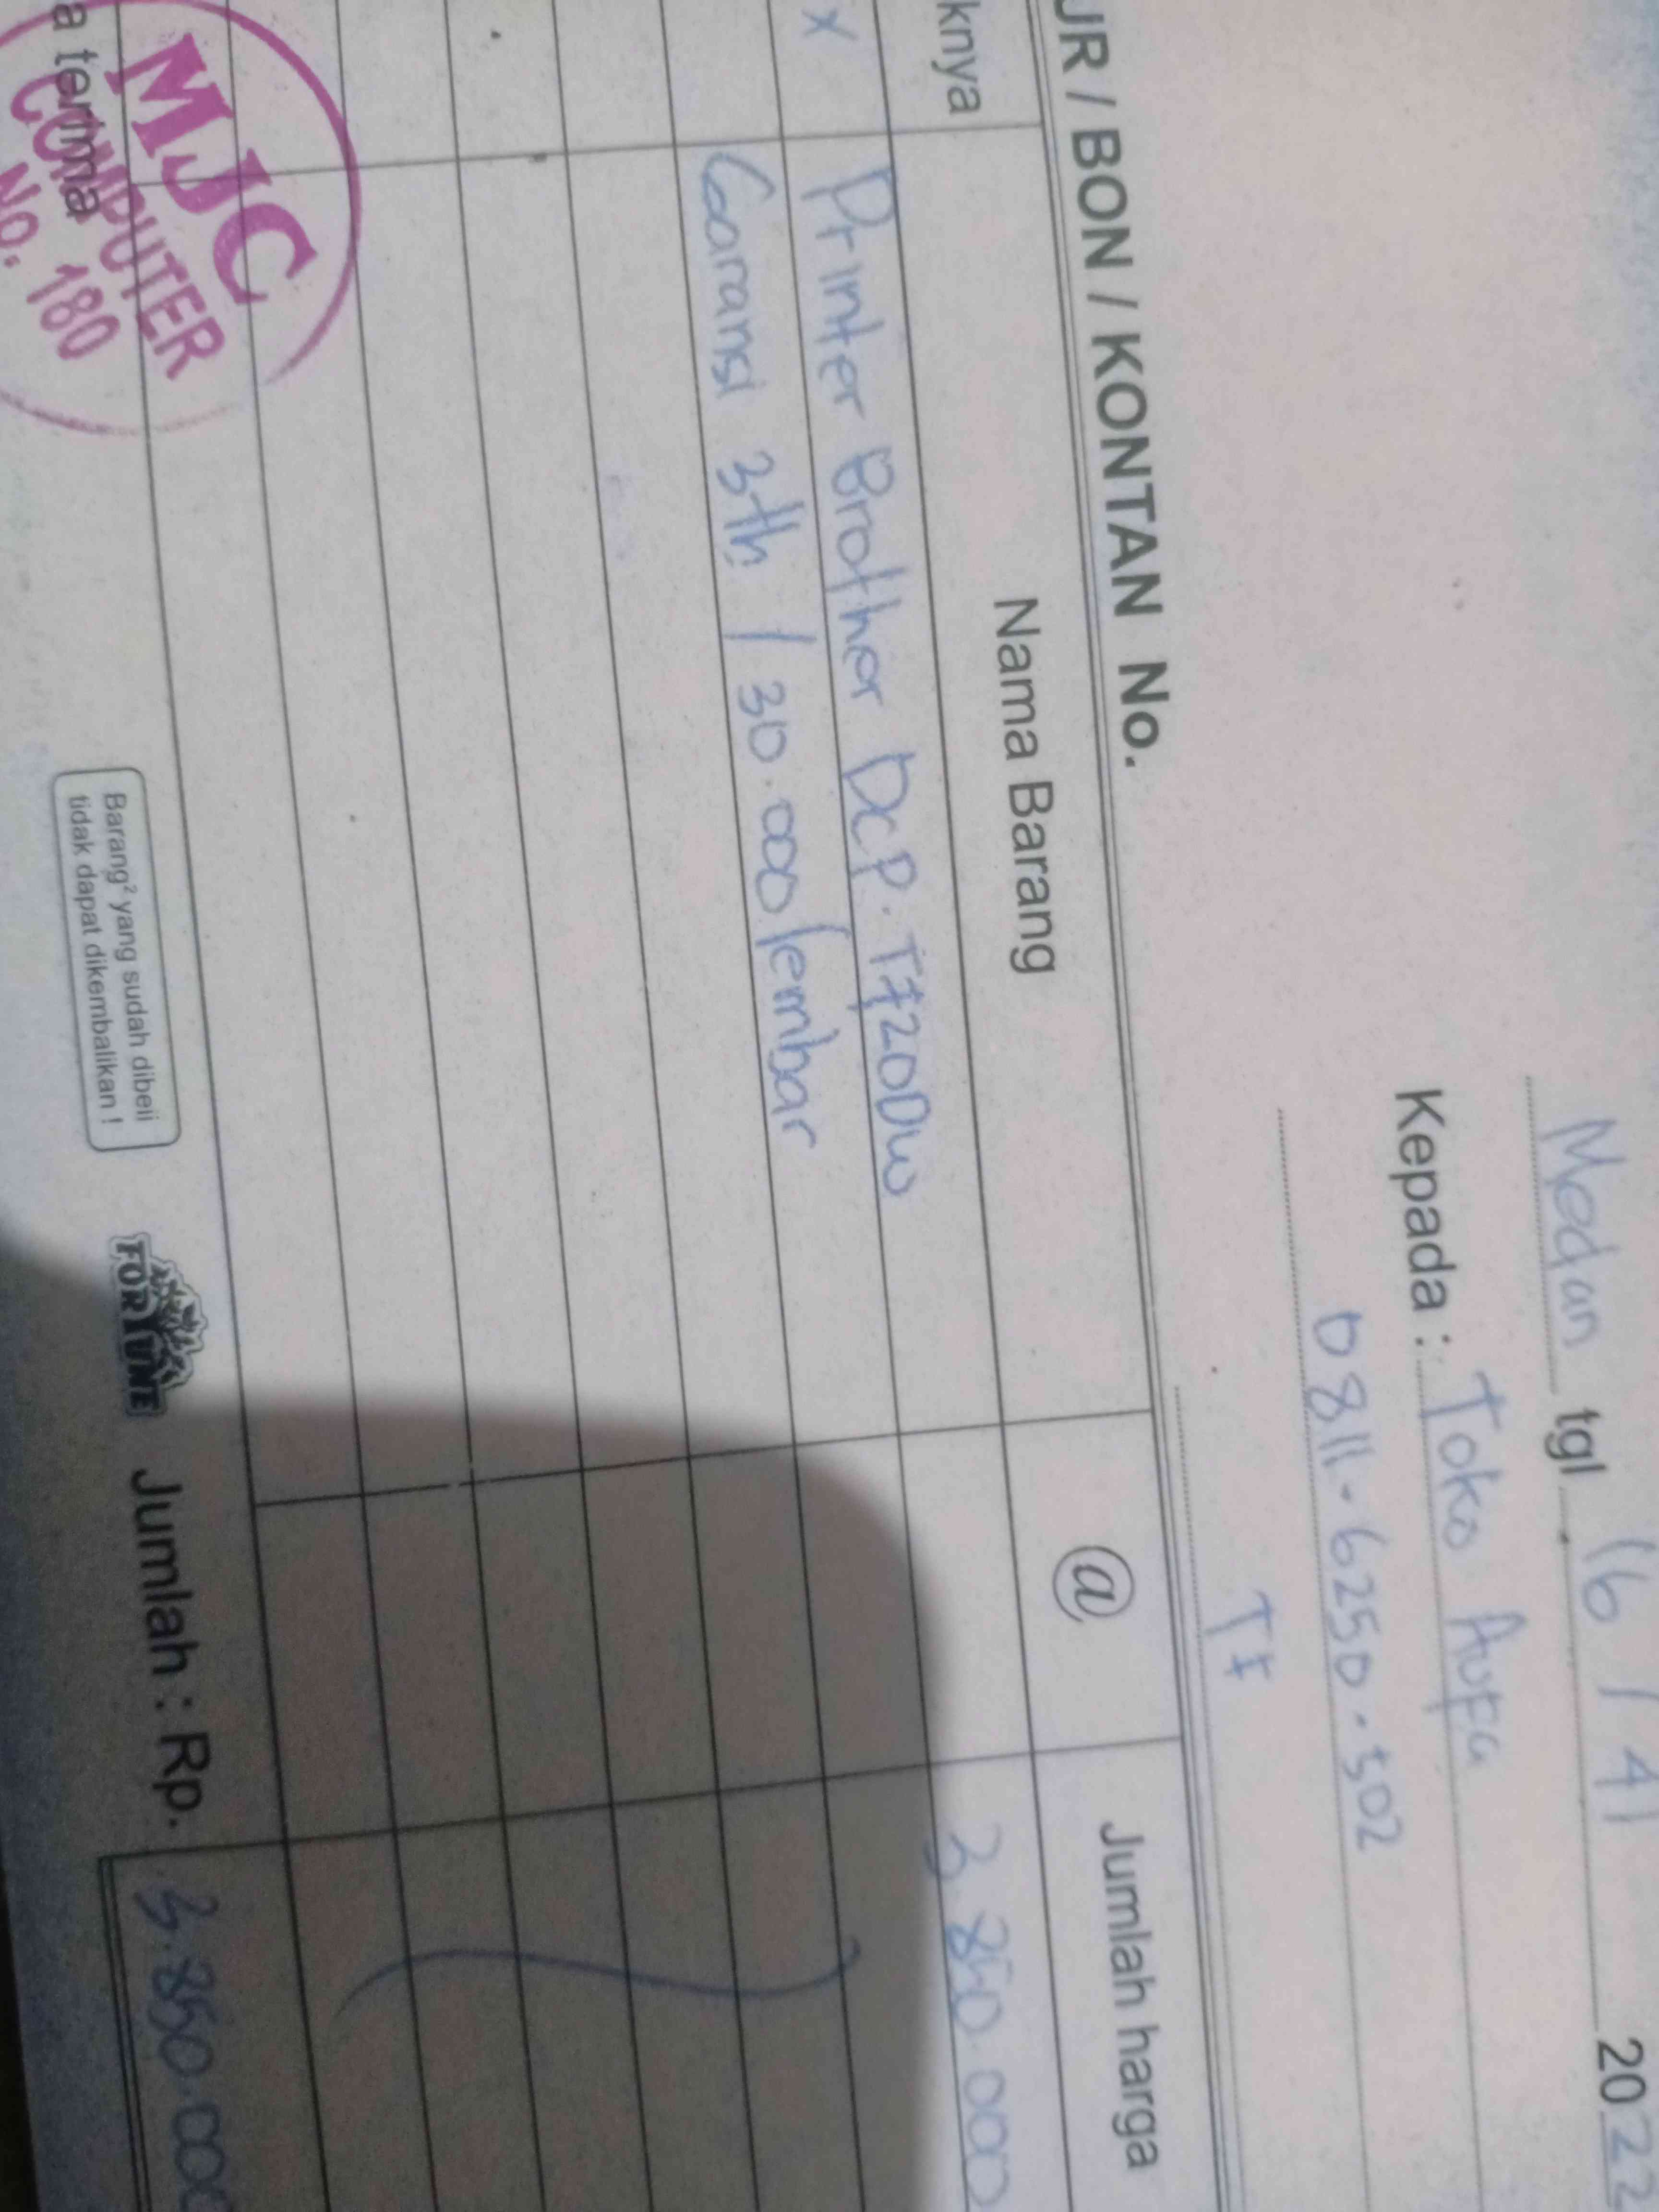 Medan tgl. 16 / 41 2022
Kepada : Toko Aufa
0811-6250-502
T7
UR / BON / KONTAN No.
knya Nama Barang @ Jumlah harga
x Printer Brother DCP. T720DW 3.850.000
Garansi 3th / 30.000 lembar
a terima
MJC
COMPUTER
No. 180
Barang² yang sudah dibeli
tidak dapat dikembalikan !
FORTUNE
Jumlah : Rp. 3.850.000